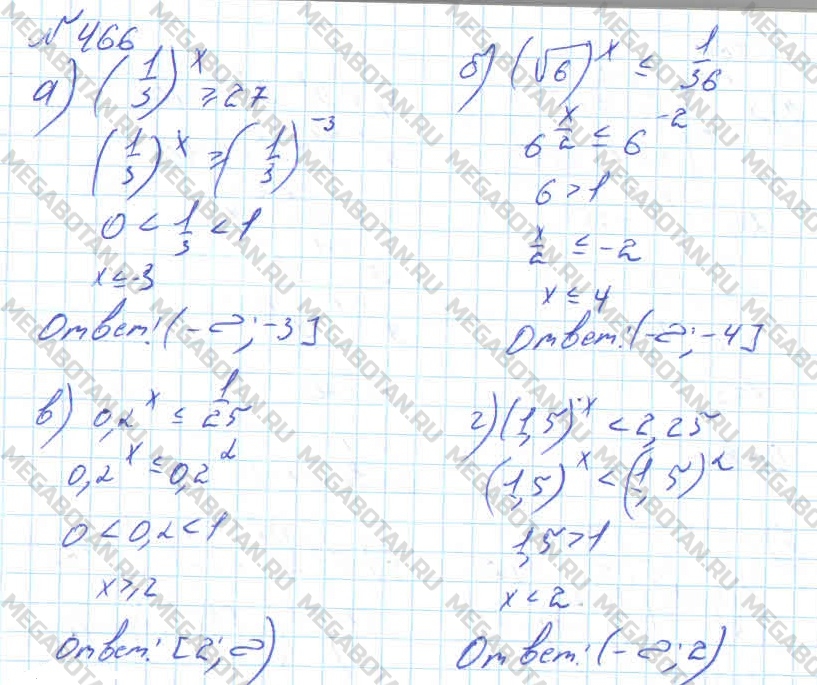 № 466
а) (1/3)^x ≥ 27
(1/3)^x ≥ (1/3)^-3
0 < 1/3 < 1
x ≤ -3
Ответ: (-∞; -3]
б) (√6)^x ≤ 1/36
6^x/2 ≤ 6^-2
6 > 1
x/2 ≤ -2
x ≤ 4
Ответ: (-∞; -4]
в) 0,2^x ≤ 1/25
0,2^x ≤ 0,2^2
0 < 0,2 < 1
x ≥ 2
Ответ: [2; ∞)
г) (1,5)^x < 2,25
(1,5)^x < (1,5)^2
1,5 > 1
x < 2
Ответ: (-∞; 2)
MEGABOTAN.RU